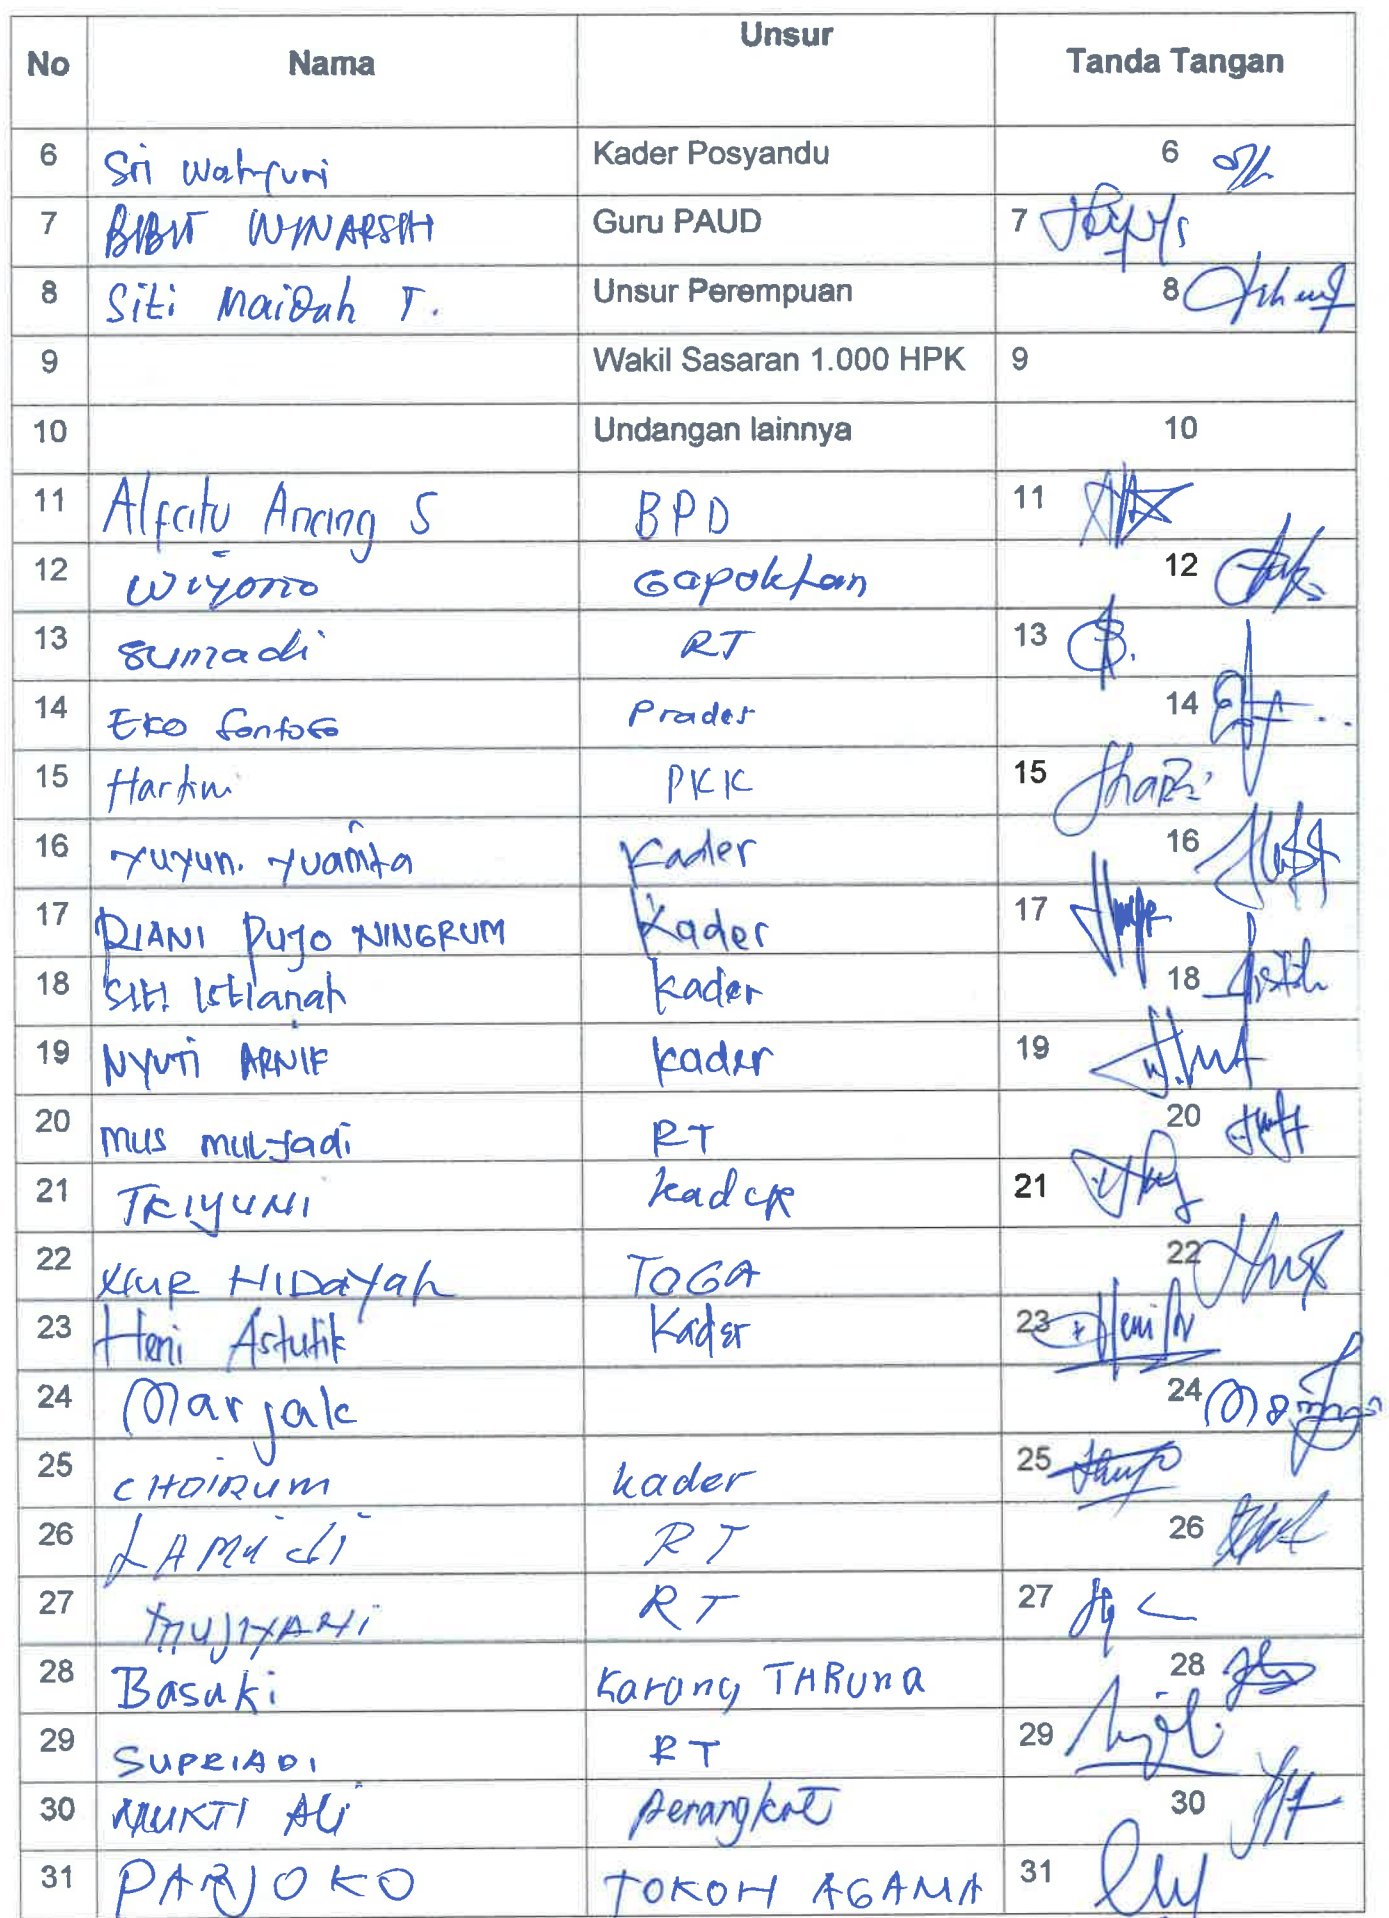 No Nama Unsur Tanda Tangan
6 Sri Wahyuni Kader Posyandu 6
7 BIBIT WINARSIH Guru PAUD 7
8 Siti Maidah T. Unsur Perempuan 8
9 Wakil Sasaran 1.000 HPK 9
10 Undangan lainnya 10
11 Anang S BPD 11
12 Wiyono Gapoktan 12
13 Sumadi RT 13
14 Eko Santoso Prades 14
15 Hartini PKK 15
16 Yuyun. Yuanita Kader 16
17 DIANI Pujo NINGRUM Kader 17
18 Siti Istianah kader 18
19 NYUTI ARNIF kader 19
20 mus mulyadi RT 20
21 TRIYUNI kader 21
22 NUR HIDAYAh TOGA 22
23 Heni Astutik Kader 23
24 Marjak 24
25 CHOIRUM kader 25
26 LAMidi RT 26
27 MUJIYANI RT 27
28 Basuki Karang TARUNA 28
29 SUPRIADI RT 29
30 MUKTI ALi perangkat 30
31 PARJOKO TOKOH AGAMA 31